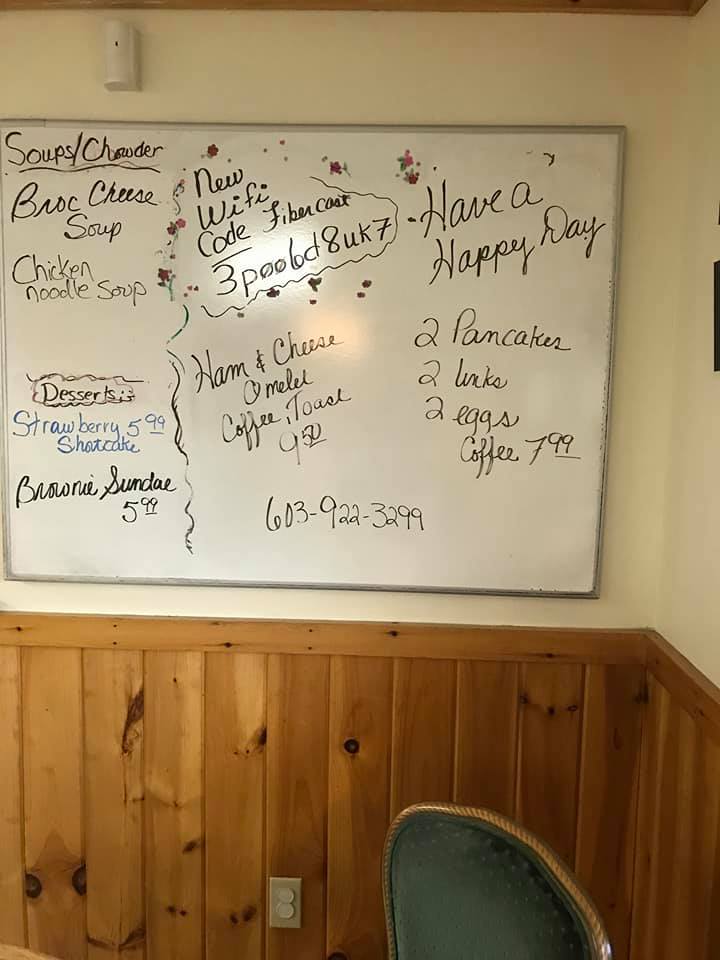 Soups/Chowder
Broc Cheese
Soup
Chicken
noodle Soup
Desserts
Strawberry 5 99
Shortcake
Brownie Sundae
5 99
New
Wifi
Code Fibercast
Ham & Cheese
Omelet
Coffee, Toast
9 50
603-922-3299
Have a
Happy Day
2 Pancakes
2 links
2 eggs
Coffee 7 99